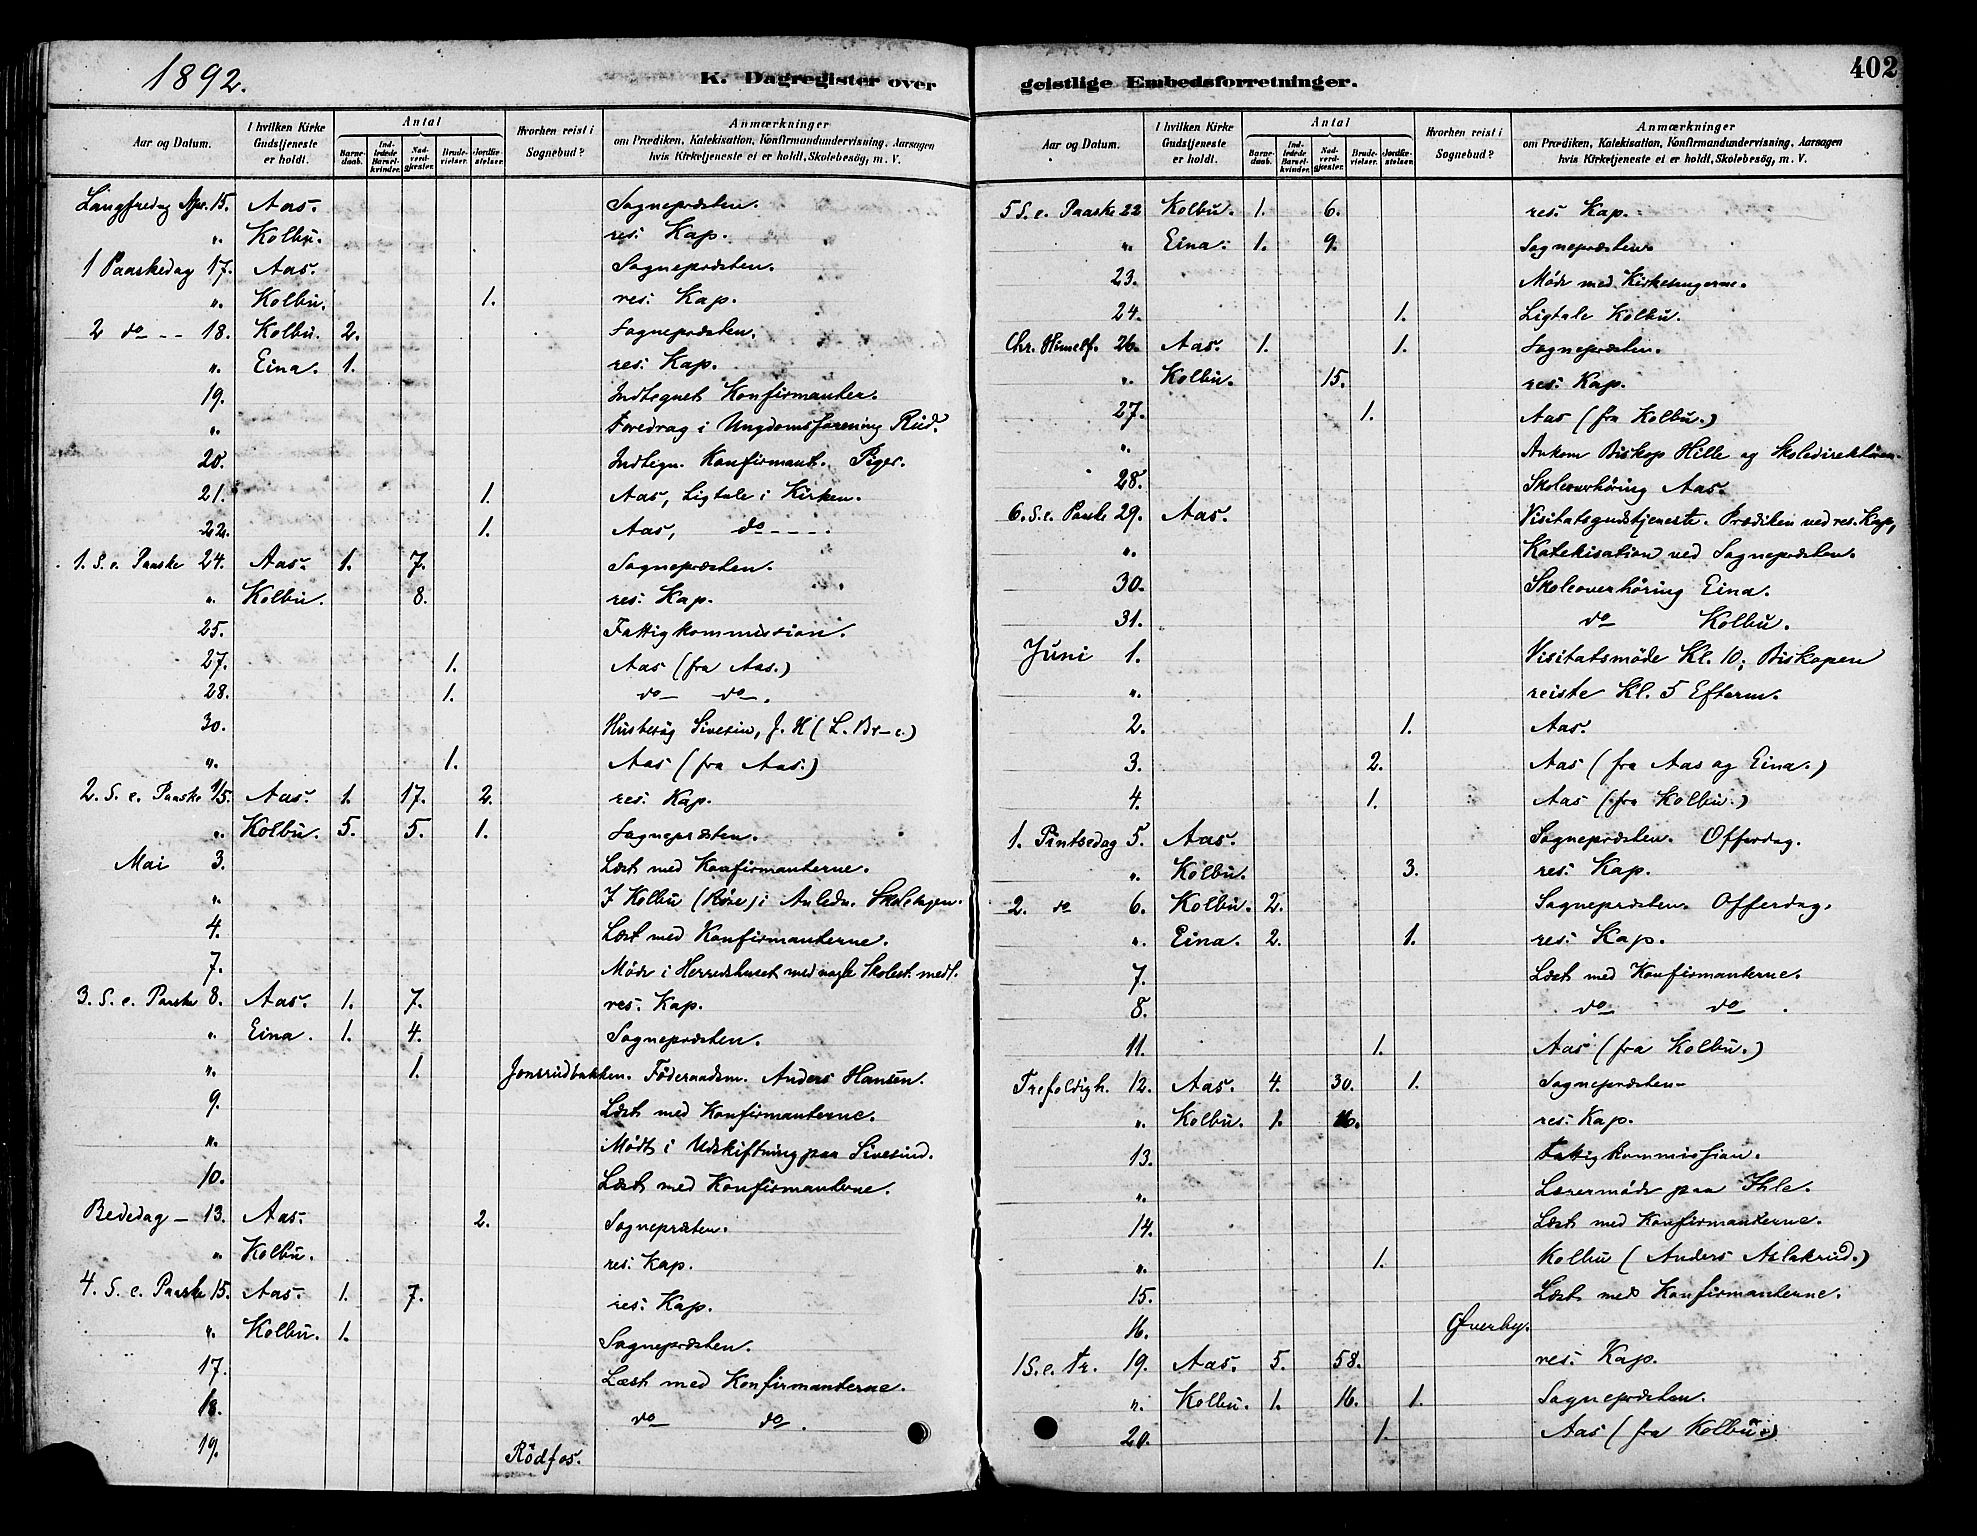 1892.
K. Dagregister over geistlige Embedsforretninger.
402
Aar og Datum. | I hvilken Kirke Gudstjeneste er holdt. | Antal | Barnedaab. | Indledede Barselkvinder. | Nadverdgjester. | Brudevielser. | Jordfæstelser. | Hvorhen reist i Sognebud? | Anmærkninger om Prædiken, Katekisation, Konfirmandundervisning, Aarsagen hvis Kirketjeneste ei er holdt, Skolebesøg, m. V.
Langfredag Apr. 15. Aas. Sognepræsten.
". Kolbu. res. Kap.
1 Paaskedag 17. Aas. Sognepræsten.
". Kolbu. 1. res. Kap.
2 do - - 18. Kolbu. 2. Sognepræsten.
". Eina. 1. res. Kap.
19. Indtegnet Konfirmanter.
". Foredrag i Ungdomsforening Rud.
20. Indtegn. Konfirmant. Piger.
21. 1. Aas, Ligtale i Kirken.
22. 1. Aas, do - - - -
1. S. e. Paaske 24. Aas. 1. 7. Sognepræsten.
". Kolbu. 8. res. Kap.
25. Fattigkommission.
27. 1. Aas (fra Aas.)
28. 1. do do.
30. Husbesøg Sivesin, J. H (L. Br-e.)
". 1. Aas (fra Aas.)
2. S. e. Paaske 1/5. Aas. 1. 17. 2. res. Kap.
". Kolbu. 5. 5. 1. Sognepræsten.
Mai 3. Læst med Konfirmanterne.
". I Kolbu i Anledn.
4. Læst med Konfirmanterne.
7. Møde i Herredshuset med nogle Skolest. medl.
3. S. e. Paaske 8. Aas. 1. 7. res. Kap.
". Eina. 1. 4. Sognepræsten.
". 1. Jonsrudbakken. Föderaadsm. Anders Hansen.
9. Læst med Konfirmanterne.
". Mødt i Udskiftning paa Sivesind.
10. Læst med Konfirmanterne.
Bededag - 13. Aas. 2. Sognepræsten.
". Kolbu. res. Kap.
4. S. e. Paaske 15. Aas. 1. 7. res. Kap.
". Kolbu. 1. Sognepræsten.
17. Læst med Konfirmanterne.
18. do do.
19. Rödfos.
Aar og Datum. | I hvilken Kirke Gudstjeneste er holdt. | Antal | Barnedaab. | Indledede Barselkvinder. | Nadverdgjester. | Brudevielser. | Jordfæstelser. | Hvorhen reist i Sognebud? | Anmærkninger om Prædiken, Katekisation, Konfirmandundervisning, Aarsagen hvis Kirketjeneste ei er holdt, Skolebesøg, m. V.
5 S. e. Paaske 22 Kolbu. 1. 6. res. Kap.
". Eina. 1. 9. Sognepræsten.
23. Møde med Kirkesangerne.
24. 1. Ligtale Kolbu.
Chr. Himelf. 26. Aas. 1. 1. Sognepræsten.
". Kolbu. 15. res. Kap.
27. 1. Aas (fra Kolbu.)
". Ankom Biskop Hille og Skoledirektören.
28. Skoleoverhöring Aas.
6. S. e. Paaske 29. Aas. Visitatsgudstjeneste. Prædiken ved res. Kap,
". Katekisation ved Sognepræsten.
30. Skoleoverhöring Eina.
31. do Kolbu.
Juni 1. Visitatsmöde Kl. 10; Biskopen
". reiste Kl. 5 Efterm.
2. 1. Aas.
3. 2. Aas (fra Aas og Eina.)
4. 1. Aas (fra Kolbu.)
1. Pintsedag 5. Aas. Sognepræsten. Offerdag.
". Kolbu. 3. res. Kap.
2. do 6. Kolbu. 2. Sognepræsten. Offerdag.
". Eina. 2. 1. res. Kap.
7. Læst med Konfirmanterne.
8. do do.
11. 1. Aas (fra Kolbu.)
Trefoldigh. 12. Aas. 4. 30. 1. Sognepræsten.
". Kolbu. 1. 16. res. Kap.
13. Fattigkommission.
". Lærermöde paa Ihle.
14. Læst med Konfirmanterne.
". 1. Kolbu (Anders Aslakrud.)
15. Læst med Konfirmanterne.
16. Øverby.
1 S. e. Tr. 19. Aas. 5. 58. res. Kap.
". Kolbu. 1. 16. 1. Sognepræsten.
20. 1. Aas (fra Kolbu.)